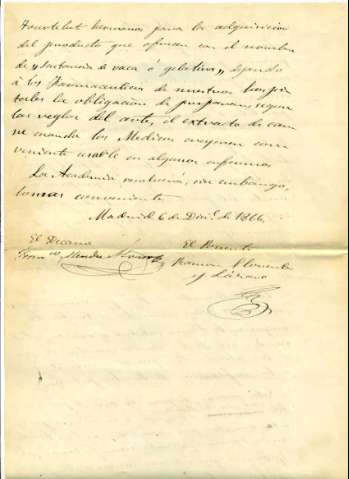 Fourtelet hermanos para la adquisicion
del producto que ofrecen con el nombre
de "Sustancia de vaca ó gelatina", dejando
á los Farmaceuticos de nuestros hospi
tales la obligacion de preparar, segun
las reglas del arte, el extracto de car
ne cuando los Medicos creyeren con
veniente usarle en algunos enfermos.
La Academia resolverá, sin embargo,
lo mas conveniente.
Madrid 6 de Dic.e de 1866.
El Decano
El Ponente
Fran.co Mendez Alvaro
Ramon Llorente
y Lázaro